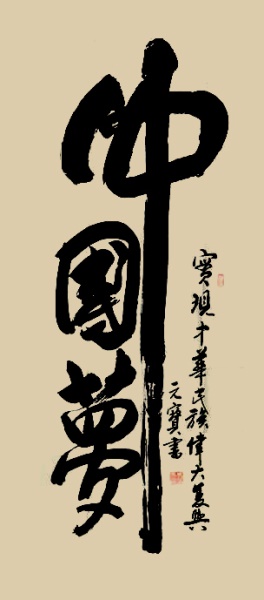 中國夢
實現中華民族偉大復興
元寶書